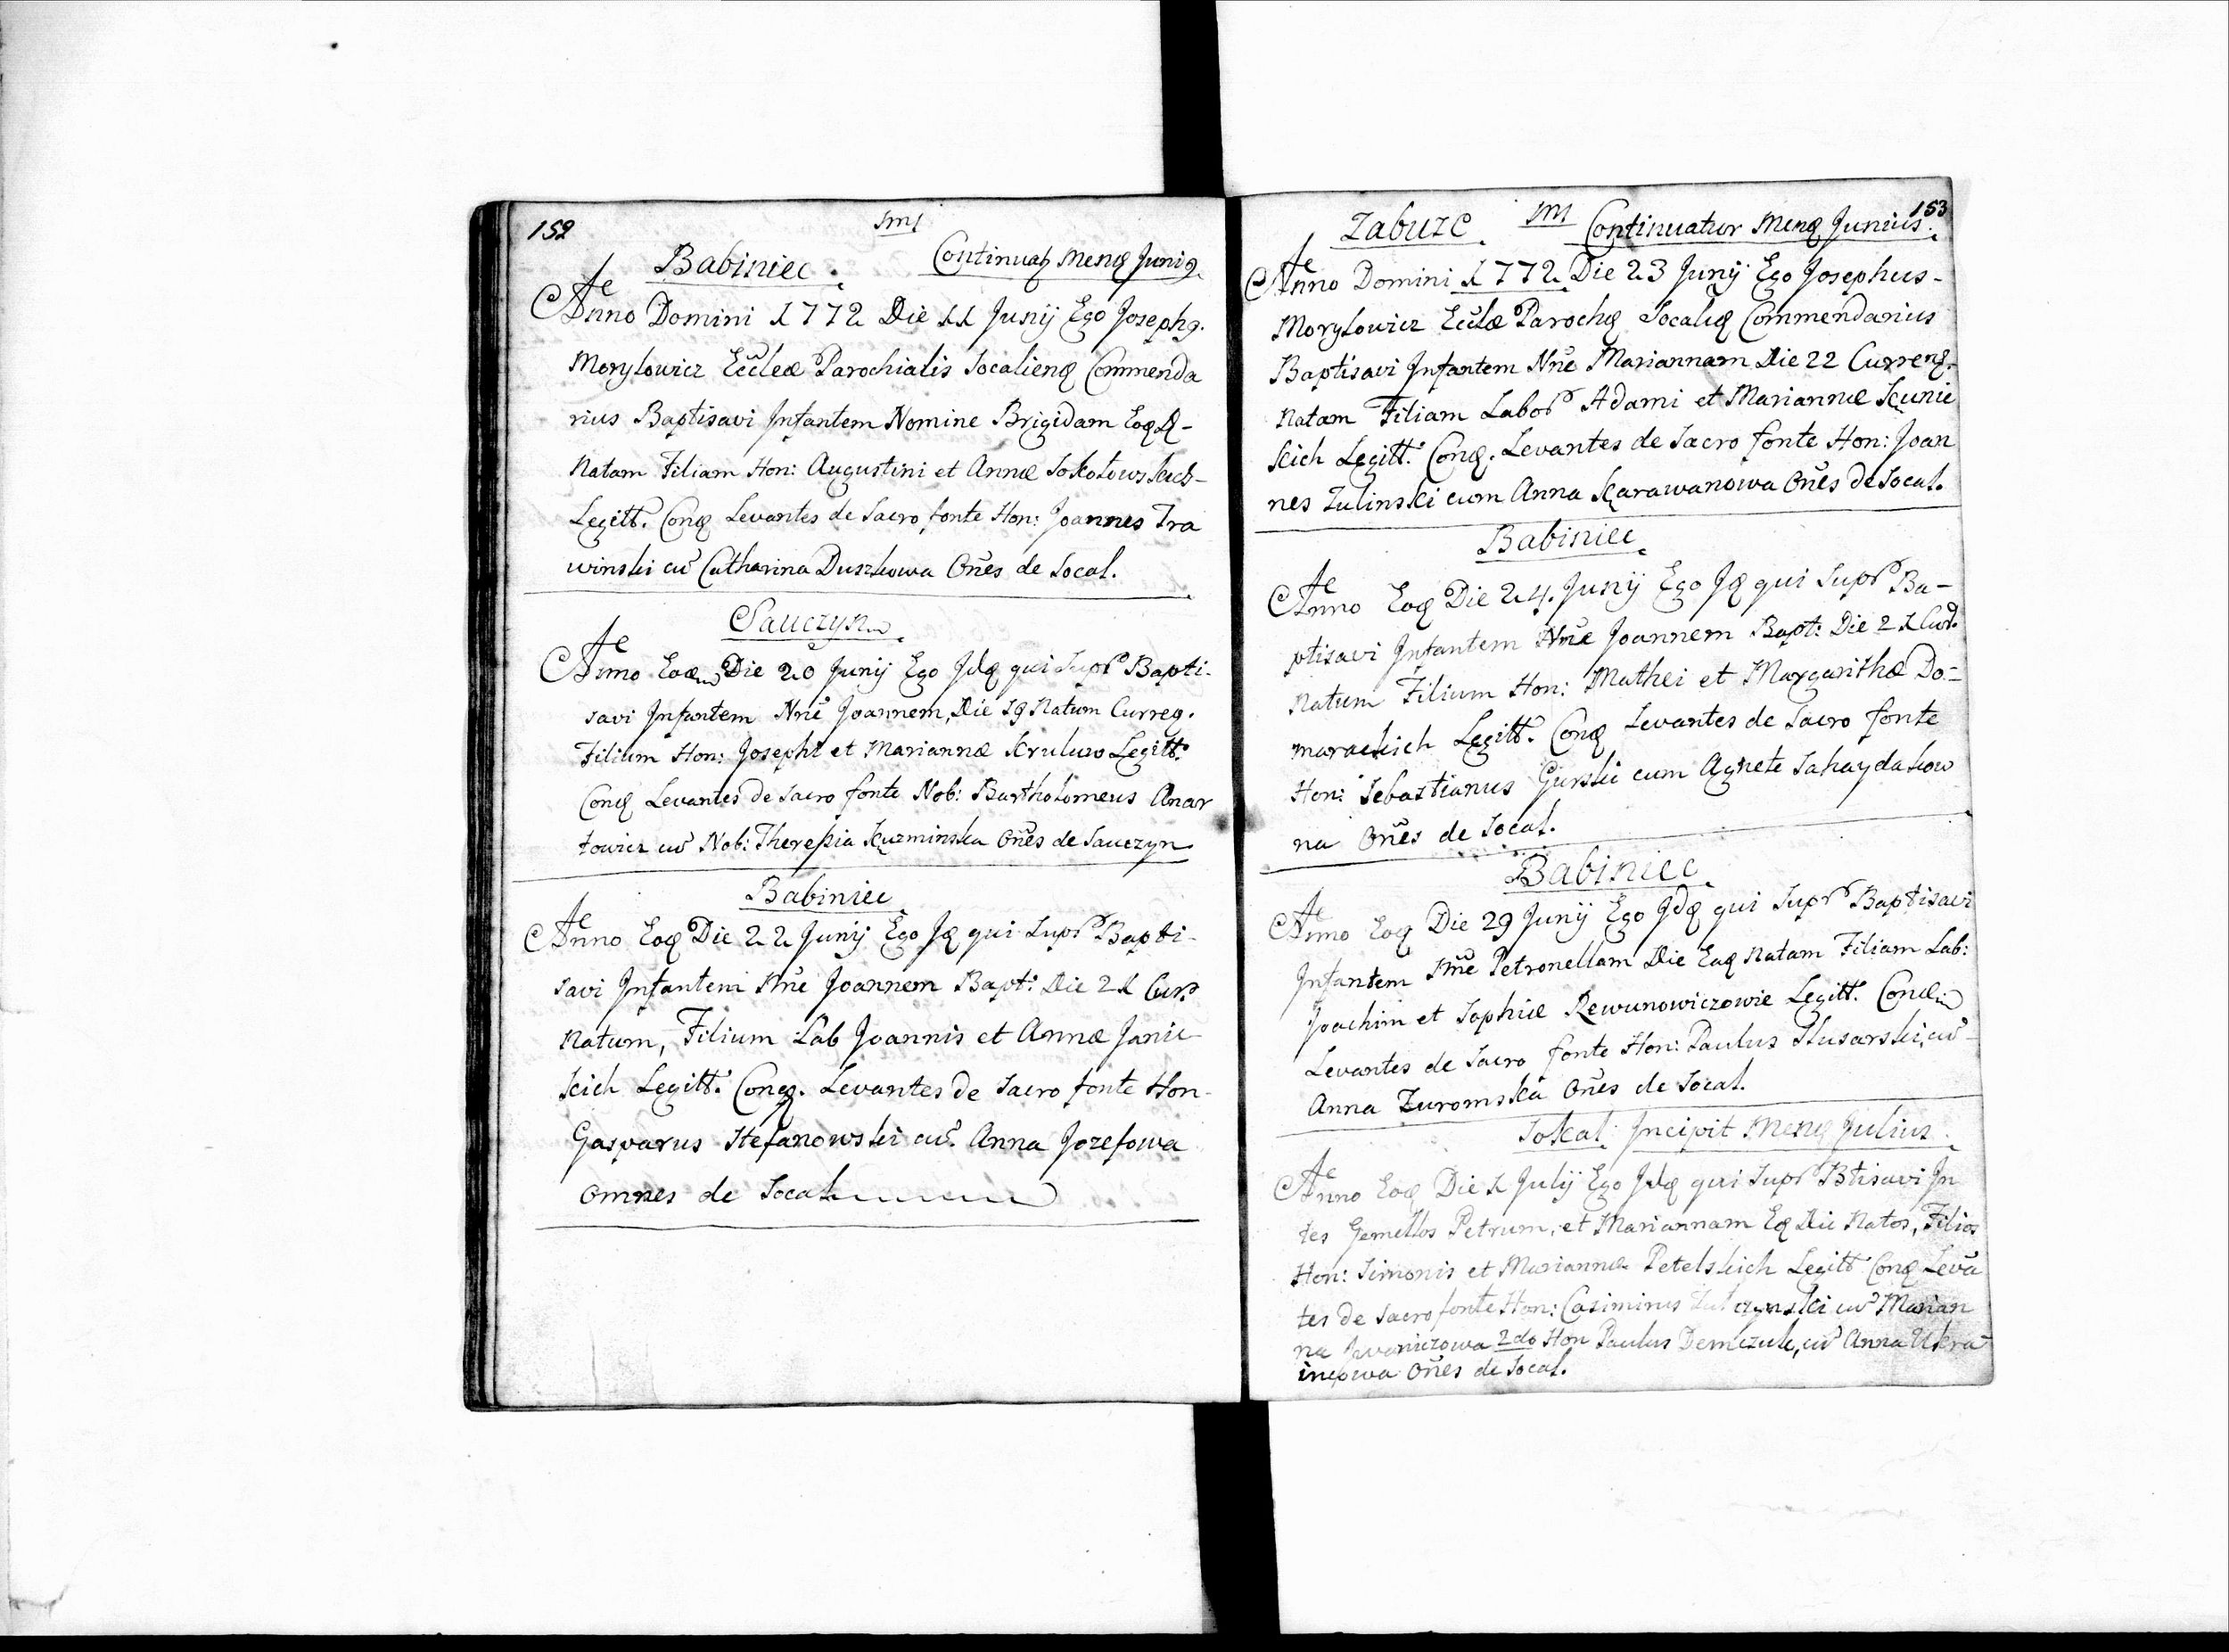 152
Babiniec.
Continuatq Mensq Juniq
Anno Domini 1772 Die 11 Junij Ego Josephq.
Morylowicz Eccleæ Parochialis Socalienq Commenda
rius Baptisavi Infantem Nomine Brigidam Eoq D-
Natam Filiam Hon: Augustini et Annæ Sokołowskich-
Legitt. Conq Levantes de Sacro fonte Hon: Joannes Tra
winski cũ Catharina Duszkowa Oñes de Socal.
Sauczyn.
Anno Eoqm Die 20 Junij Ego Jdq qui Supr Bapti-
savi Infantem Nñe Joannem, Die 19 Natum Curreq.
Filium Hon: Josephi et Mariannæ Krulów Legitt.
Conq Levantes de Sacro fonte Nob: Bartholomeus Anar
towicz cũ Nob: Theressia Kuzminska Oñes de Sauczyn
Babiniec.
Anno Eoq Die 22 Junij Ego Jq qui Supr Bapti-
savi Infantem Nñe Joannem Bapt: Die 21 Curr.
Natum, Filium Lab Joannis et Annæ Janic
kich Legitt. Conq. Levantes de Sacro fonte Hon-
Gasparus Stefanowski cũ. Anna Jozefowa
Omnes de Socal
153
Zabuze.
Continuatur Mensq Junius.
Anno Domini 1772 Die 23 Junij Ego Josephus-
Morylowicz Eccłæ Parochq Socaliq Commendarius
Baptisavi Infantem Nñe Mariannam Die 22 Currenq.
Natam Filiam Labor Adami et Mariannæ Kunic
kich Legitt. Conq. Levantes de Sacro fonte Hon: Joan
nes Zulinski cum Anna Karawanowa Oñes de Socal.
Babiniec.
Anno Eoq Die 24. Junij Ego Jq qui Supr Ba-
ptisavi Infantem Nñe Joannem Bapt: Die 21 Curr.
Natum Filium Hon: Mathei et Margarithæ Do-
marackich Legitt. Conq Levantes de Sacro fonte
Hon: Sebastianus Gurski cum Agnete Sahaydakow
na Oñes de Socal.
Babiniec.
Anno Eoq Die 29 Junij Ego Jdq qui Supr Baptisavi
Infantem Nñe Petronellam Die Eaq Natam Filiam Lab:
Joachim et Sophiæ Rewunowiczowie Legitt. Conq
Levantes de Sacro fonte Hon: Paulus Slusarski, cũ-
Anna Zuromska Oñes de Socal.
Sokal. Incipit Mensq Julius.
Anno Eoq Die 1 Julij Ego Jdq qui Supr Btisavi In
tes Gemellos Petrum, et Mariannam Eq Die Natos, Filios
Hon: Simonis et Mariannæ Petelskich Legitt Conq Levã
tes de Sacro fonte Hon: Casimirus cũ Marian
na Iwaniczowa 2do Hon Paulus Demczuk, cũ Anna Ukra
incowa Oñes de Socal.